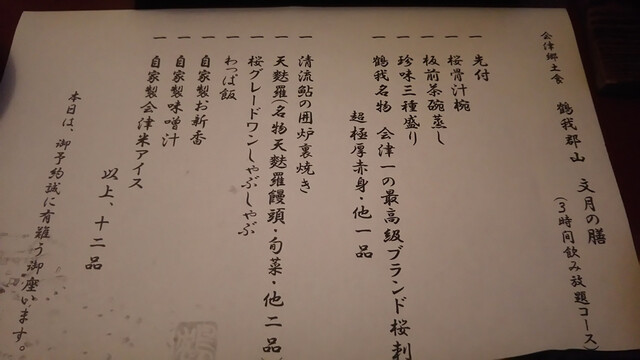 会津郷土食　鶴我郡山　文月の膳
（３時間飲み放題コース）
一　先付
一　桜骨汁椀
一　板前茶碗蒸し
一　珍味三種盛り
一　鶴我名物　会津一の最高級ブランド桜刺
超極厚赤身・他一品
一　清流鮎の囲炉裏焼き
一　天麩羅（名物天麩羅饅頭・旬菜・他二品
一　桜グレードワンしゃぶしゃぶ
一　わっぱ飯
一　自家製お新香
一　自家製味噌汁
一　自家製会津米アイス
以上、十二品
本日は、御予約誠に有難う御座います。